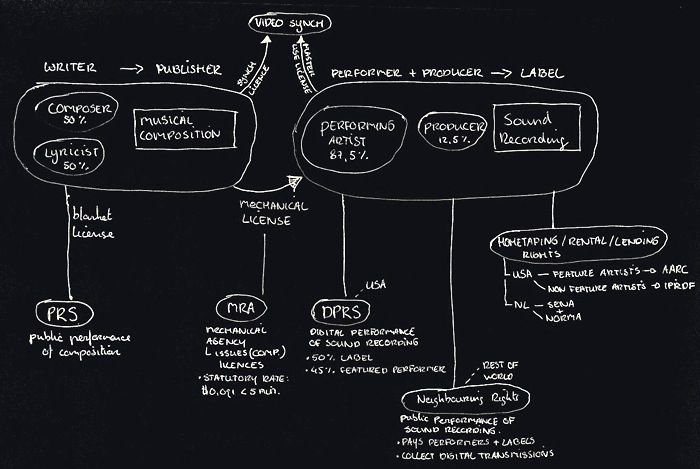 VIDEO SYNCH
SYNCH LICENCE
MASTER USE LICENSE
WRITER → PUBLISHER
PERFORMER + PRODUCER → LABEL
COMPOSER
50%
LYRICIST
50%
MUSICAL
COMPOSITION
PERFORMING
ARTIST
87,5%
PRODUCER
12,5%
Sound
Recording
blanket
License
MECHANICAL
LICENSE
HOMETAPING/RENTAL/LENDING
RIGHTS
USA — FEATURE ARTISTS → AARC
NON FEATURE ARTISTS → IPRDF
NL — SENA
+
NORMA
PRS
public performance
of composition
MRA
MECHANICAL
AGENCY
ISSUES (COMP.)
LICENCES
• STATUTORY RATE:
$0,091 < 5 min.
USA
DPRS
DIGITAL PERFORMANCE
OF SOUND RECORDING
• 50% LABEL
• 45% FEATURED PERFORMER
REST OF
WORLD
Neighbouring Rights
PUBLIC PERFORMANCE OF
SOUND RECORDING.
• PAYS PERFORMERS + LABELS
• COLLECT DIGITAL TRANSMISSIONS